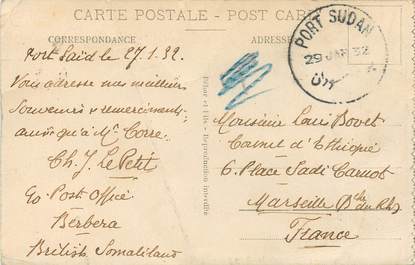 CARTE POSTALE - POST CARD
CORRESPONDANCE
ADRESSE
PORT SUDAN
29 JAN 32
Port Said le 27.1.32.
Vous adresse mes meilleurs
Souvenirs & remerciements
ainsi qu'à Mr Corre.
Ch. J. Le Petit
Post Office
Berbera
British Somaliland
Reproduction interdite
Monsieur Louis Bovet
Consul d'Ethiopie
6. Place Sadi Carnot
Marseille (B. du Rh)
France